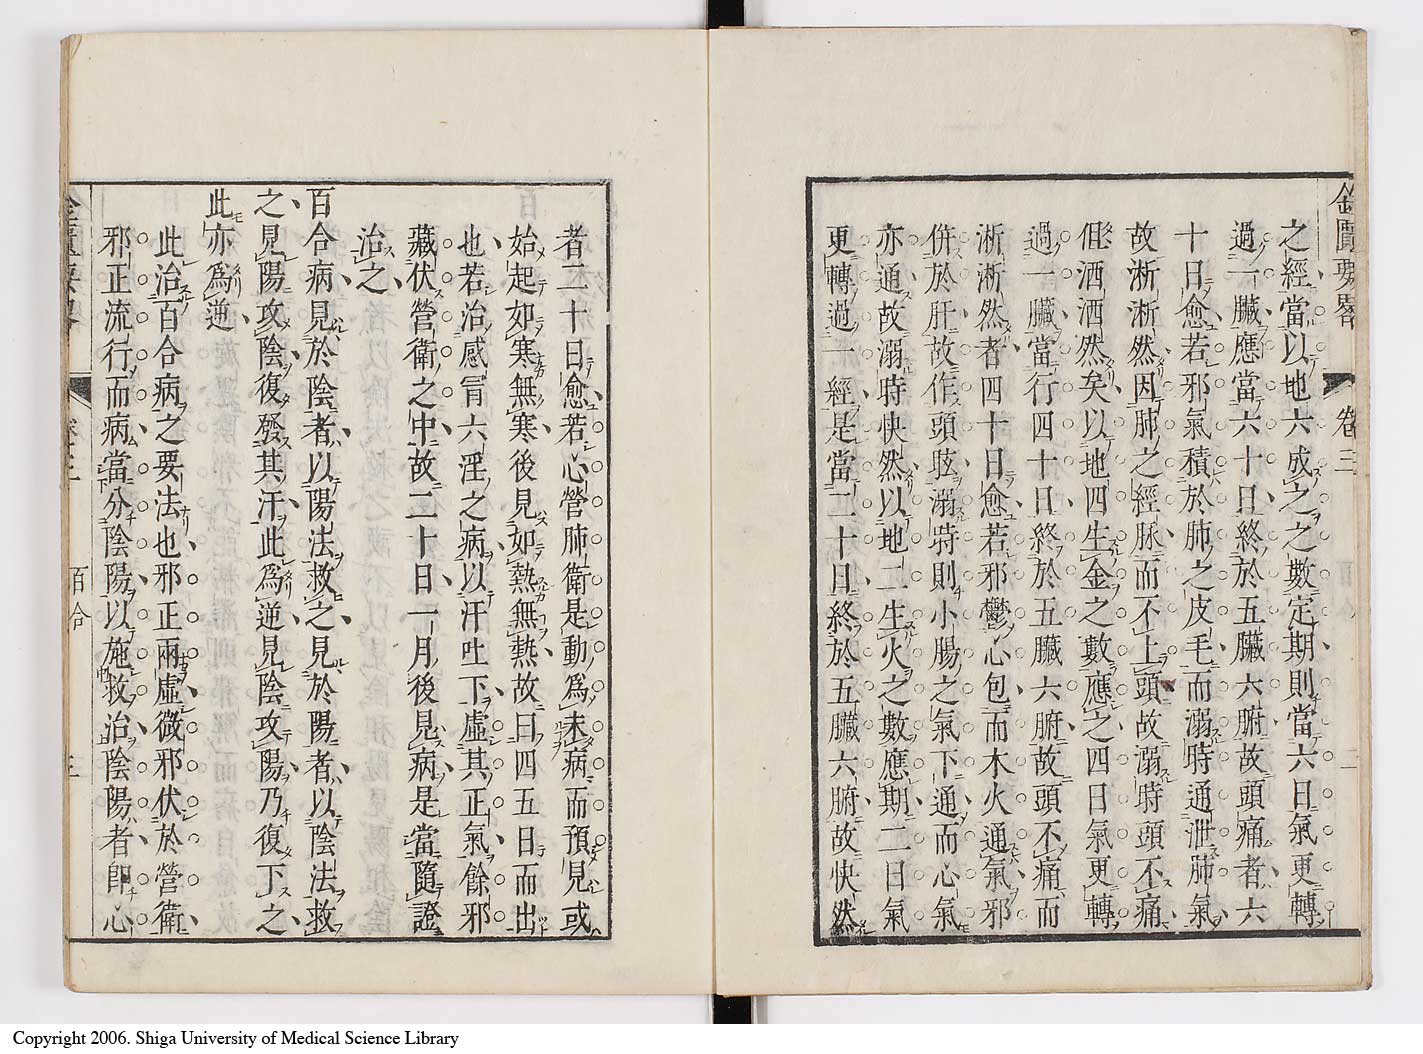 金匱要畧 卷三 二
之經當以地六成之之數定期則當六日氣更轉
過一臟應當六十日終於五臟六腑故頭痛者六
十日愈若邪氣積於肺之皮毛而溺時通泄肺氣
故淅淅然因肺之經脈而不上頭故溺時頭不痛
但洒洒然矣以地四生金之數應之四日氣更轉
過一臟當行四十日終於五臟六腑故頭不痛而
淅淅然者四十日愈若邪鬱心包而木火通氣邪
併於肝故作頭眩溺時則小腸之氣下通而心氣
亦通故溺時快然以地二生火之數應期二日氣
更轉過一經是當二十日終於五臟六腑故快然
者二十日愈若心營肺衛是動為未病而預見或
始起如寒無寒後見如熱無熱故曰四五日而出
也若治感冐六淫之病以汗吐下虛其正氣餘邪
藏伏營衛之中故二十日一月後見病是當隨證
治之
百合病見於陰者以陽法救之見於陽者以陰法救
之見陽攻陰復發其汗此為逆見陰攻陽乃復下之
此亦為逆
此治百合病之要法也邪正兩虛微邪伏於營衛
邪正流行而病當分陰陽以施救治陰陽者即心
金匱要畧 卷三 百合 三
Copyright 2006. Shiga University of Medical Science Library